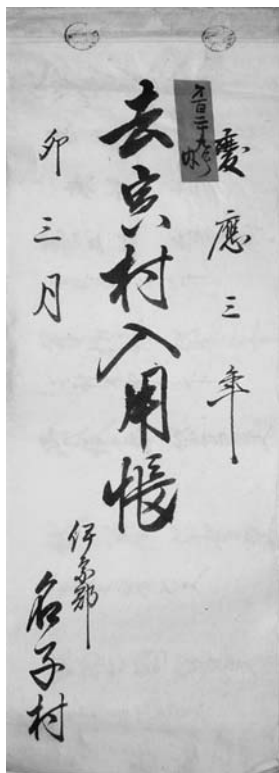 慶應三年
去寅村入用帳
卯三月
伊奈郡
名子村